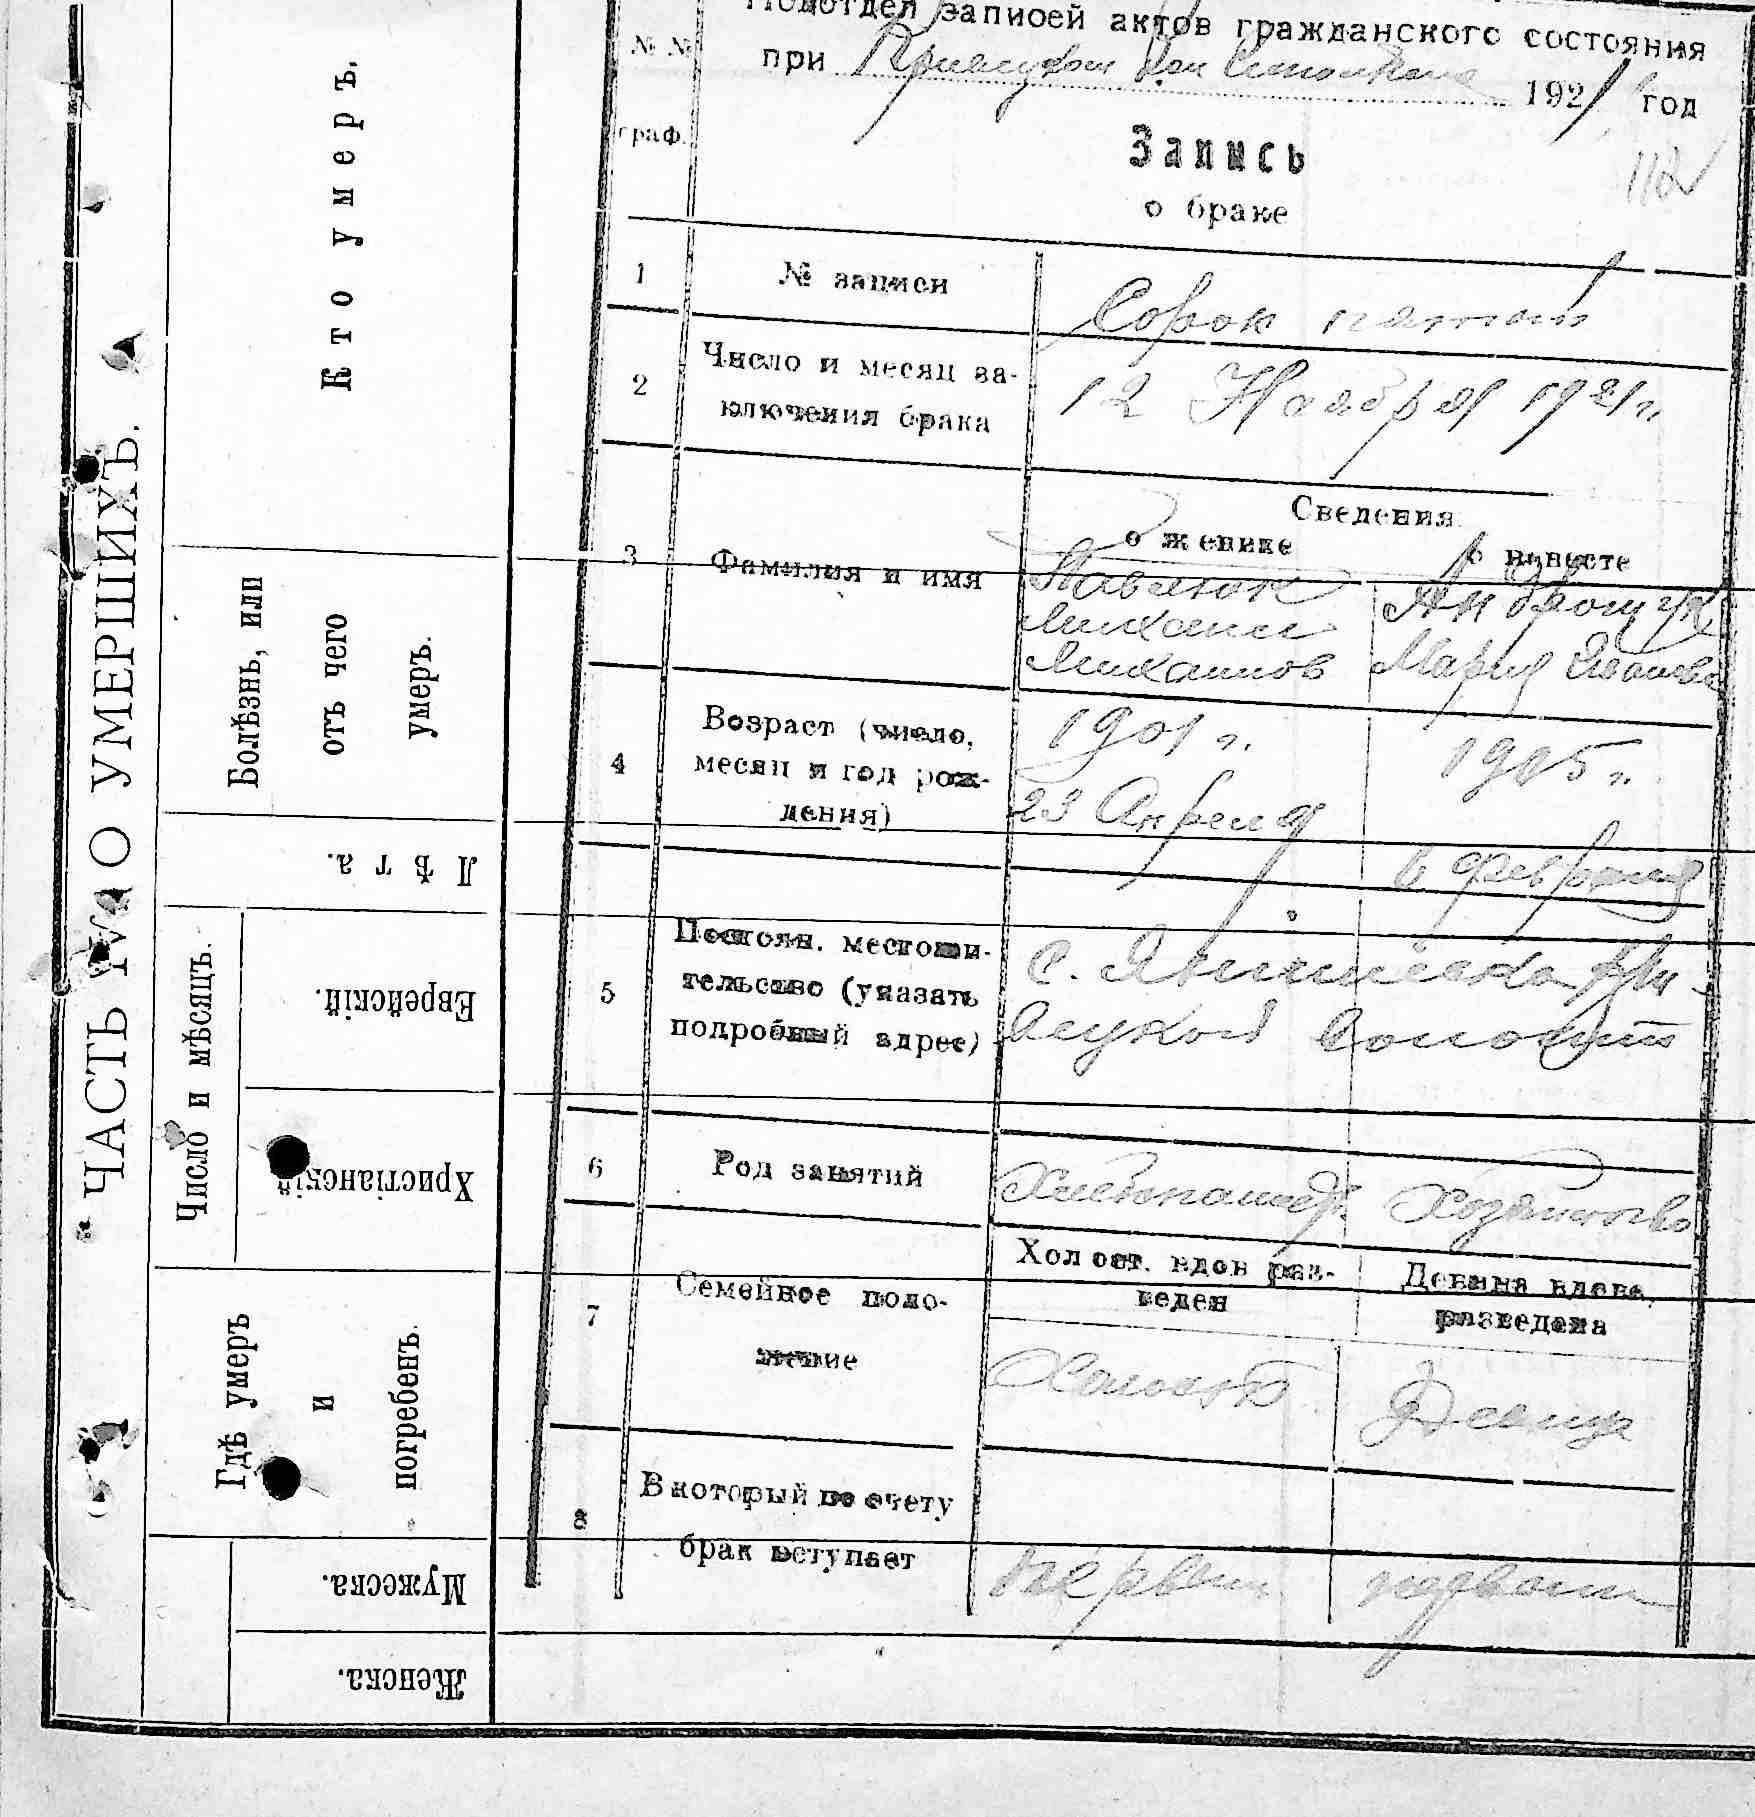 ЧАСТЬ О УМЕРШИХЪ.
Кто умеръ.
Болѣзнь, или
отъ чего
умеръ.
Лѣта.
Число и мѣсяцъ.
Еврейскій.
Христіанскій
Гдѣ умеръ
и
погребенъ.
Мужеска.
Женска.
Подотдел записей актов гражданского состояния
№ №
граф.
при 1921 год
Запись
о браке
112
1 № записи Сорок пятый
2 Число и месяц за-
ключения брака
12 Ноября 1921 г.
Сведения
о женихе о невесте
3 Фамилия и имя
Павлюк Андрощук
Михаил
Михайлов Мария Иванова
4 Возраст (число,
месяц и год рож-
дения)
1901 г. 1905 г.
23 Апреля 6 Февраля
5 Постоян. местожи-
тельство (указать
подробный адрес)
с. При-
лукой Волости
6 Род занятий Хлебпашец Хозяйство
7 Семейное поло-
жение
Холост. вдов раз-
веден
Девица вдова,
разведена
Холост Девица
8 В который по счету
брак вступает
первый первый